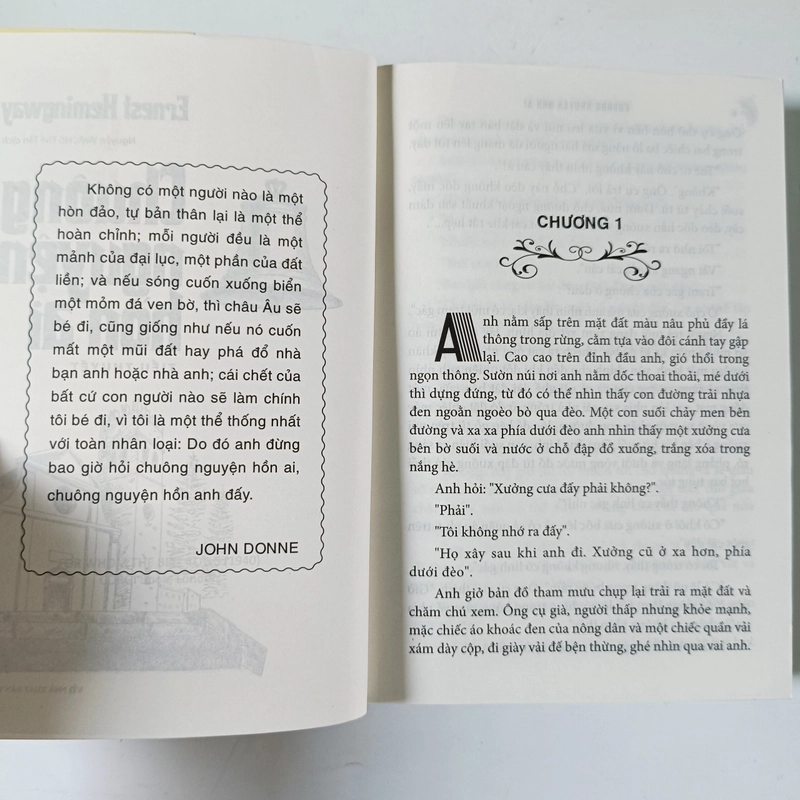 Không có một người nào là một
hòn đảo, tự bản thân lại là một thể
hoàn chỉnh; mỗi người đều là một
mảnh của đại lục, một phần của đất
liền; và nếu sóng cuốn xuống biển
một mỏm đá ven bờ, thì châu Âu sẽ
bé đi, cũng giống như nếu nó cuốn
mất một mũi đất hay phá đổ nhà
bạn anh hoặc nhà anh; cái chết của
bất cứ con người nào sẽ làm chính
tôi bé đi, vì tôi là một thể thống nhất
với toàn nhân loại: Do đó anh đừng
bao giờ hỏi chuông nguyện hồn ai,
chuông nguyện hồn anh đấy.
JOHN DONNE
CHƯƠNG 1
Anh nằm sấp trên mặt đất màu nâu phủ đầy lá
thông trong rừng, cằm tựa vào đôi cánh tay gập
lại. Cao cao trên đỉnh đầu anh, gió thổi trong
ngọn thông. Sườn núi nơi anh nằm dốc thoai thoải, mé dưới
thì dựng đứng, từ đó có thể nhìn thấy con đường trải nhựa
đen ngoằn ngoèo bò qua đèo. Một con suối chảy men bên
đường và xa xa phía dưới đèo anh nhìn thấy một xưởng cưa
bên bờ suối và nước ở chỗ đập đổ xuống, trắng xóa trong
nắng hè.
Anh hỏi: "Xưởng cưa đấy phải không?".
"Phải".
"Tôi không nhớ ra đấy".
"Họ xây sau khi anh đi. Xưởng cũ ở xa hơn, phía
dưới đèo".
Anh giở bản đồ tham mưu chụp lại trải ra mặt đất và
chăm chú xem. Ông cụ già, người thấp nhưng khỏe mạnh,
mặc chiếc áo khoác đen của nông dân và một chiếc quần vải
xám dày cộp, đi giày vải đế bện thừng, ghé nhìn qua vai anh.